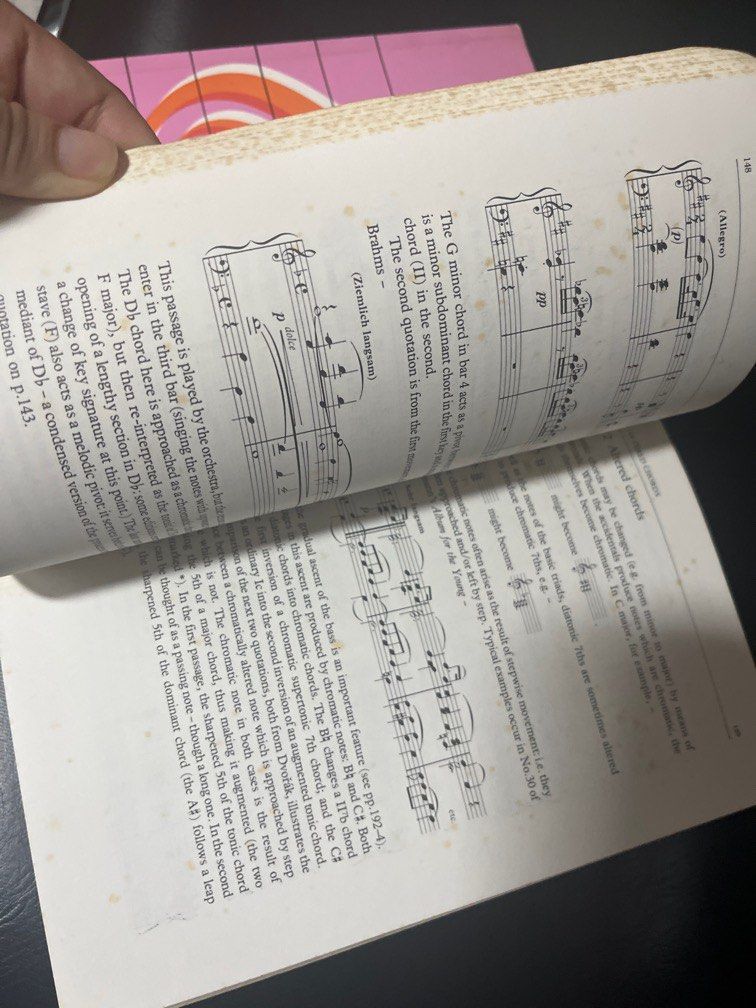 148
(Allegro)
(p)
pp
The G minor chord in bar 4 acts as a pivot
is a minor subdominant chord in the first key and
chord (II) in the second.
The second quotation is from the first
Brahms –
(Ziemlich langsam)
p dolce
This passage is played by the orchestra, but the
enter in the third bar (singing the notes with
The D♭ chord here is approached as a chromatic
F major), but then re-interpreted as the tonic
opening of a lengthy section in D♭; some editions
a change of key signature at this point.) The
stave (F) also acts as a melodic pivot: it serves
mediant of D♭ – a condensed version of the
quotation on p.143.
149
2 Altered chords
may be changed (e.g. from minor to major) by means of
When the accidentals produce notes which are chromatic, the
themselves become chromatic. In C major, for example, –
might become
the notes of the basic triads, diatonic 7ths are sometimes altered
to produce chromatic 7ths, e.g. –
might become
chromatic notes often arise as the result of stepwise movement: i.e. they
approached and/or left by step. Typical examples occur in No.30 of
Album for the Young –
langsam
etc
gradual ascent of the bass is an important feature (see pp.192–4).
in this ascent are produced by chromatic notes: B♮ and C♯. Both
diatonic chords into chromatic chords. The B♮ changes a II⁷b chord
first inversion of a chromatic supertonic 7th chord; and the C♯
an ordinary Ic into the second inversion of an augmented tonic chord.
of the next two quotations, both from Dvořák, illustrates the
between a chromatically altered note which is approached by step
which is not. The chromatic note in both cases is the result of
the 5th of a major chord, thus making it augmented (the two
marked *). In the first passage, the sharpened 5th of the tonic chord
can be thought of as a passing note – though a long one. In the second
the sharpened 5th of the dominant chord (the A♯) follows a leap